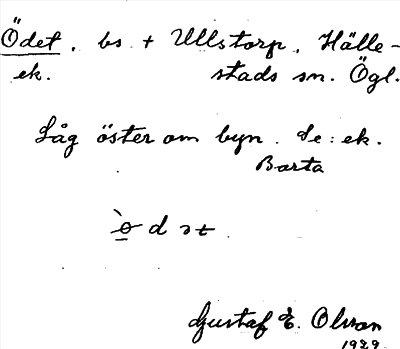 Ödet, bs. + Ullstorp, Hälle-
ek. stads sn. Ögl.
Låg öster om byn. Se: ek.
Barta
Gustaf E. Olsson
1929.